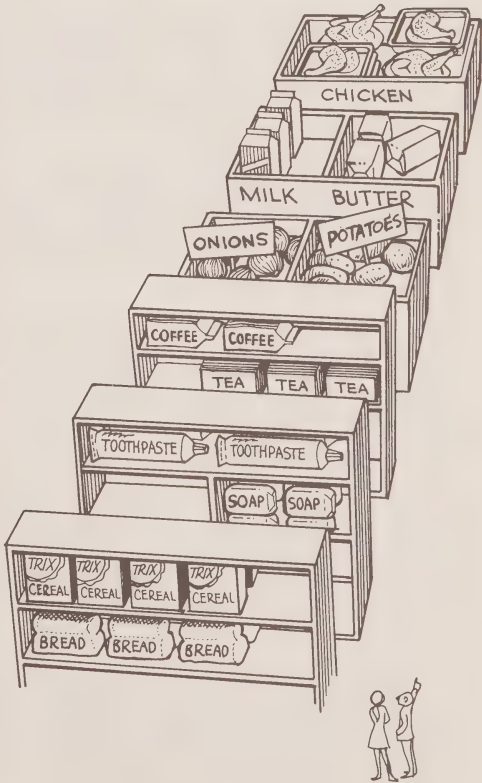 CHICKEN
MILK BUTTER
ONIONS
POTATOES
COFFEE COFFEE
TEA TEA TEA
TOOTHPASTE TOOTHPASTE
SOAP SOAP
TRIX TRIX TRIX TRIX
CEREAL CEREAL CEREAL CEREAL
BREAD BREAD BREAD